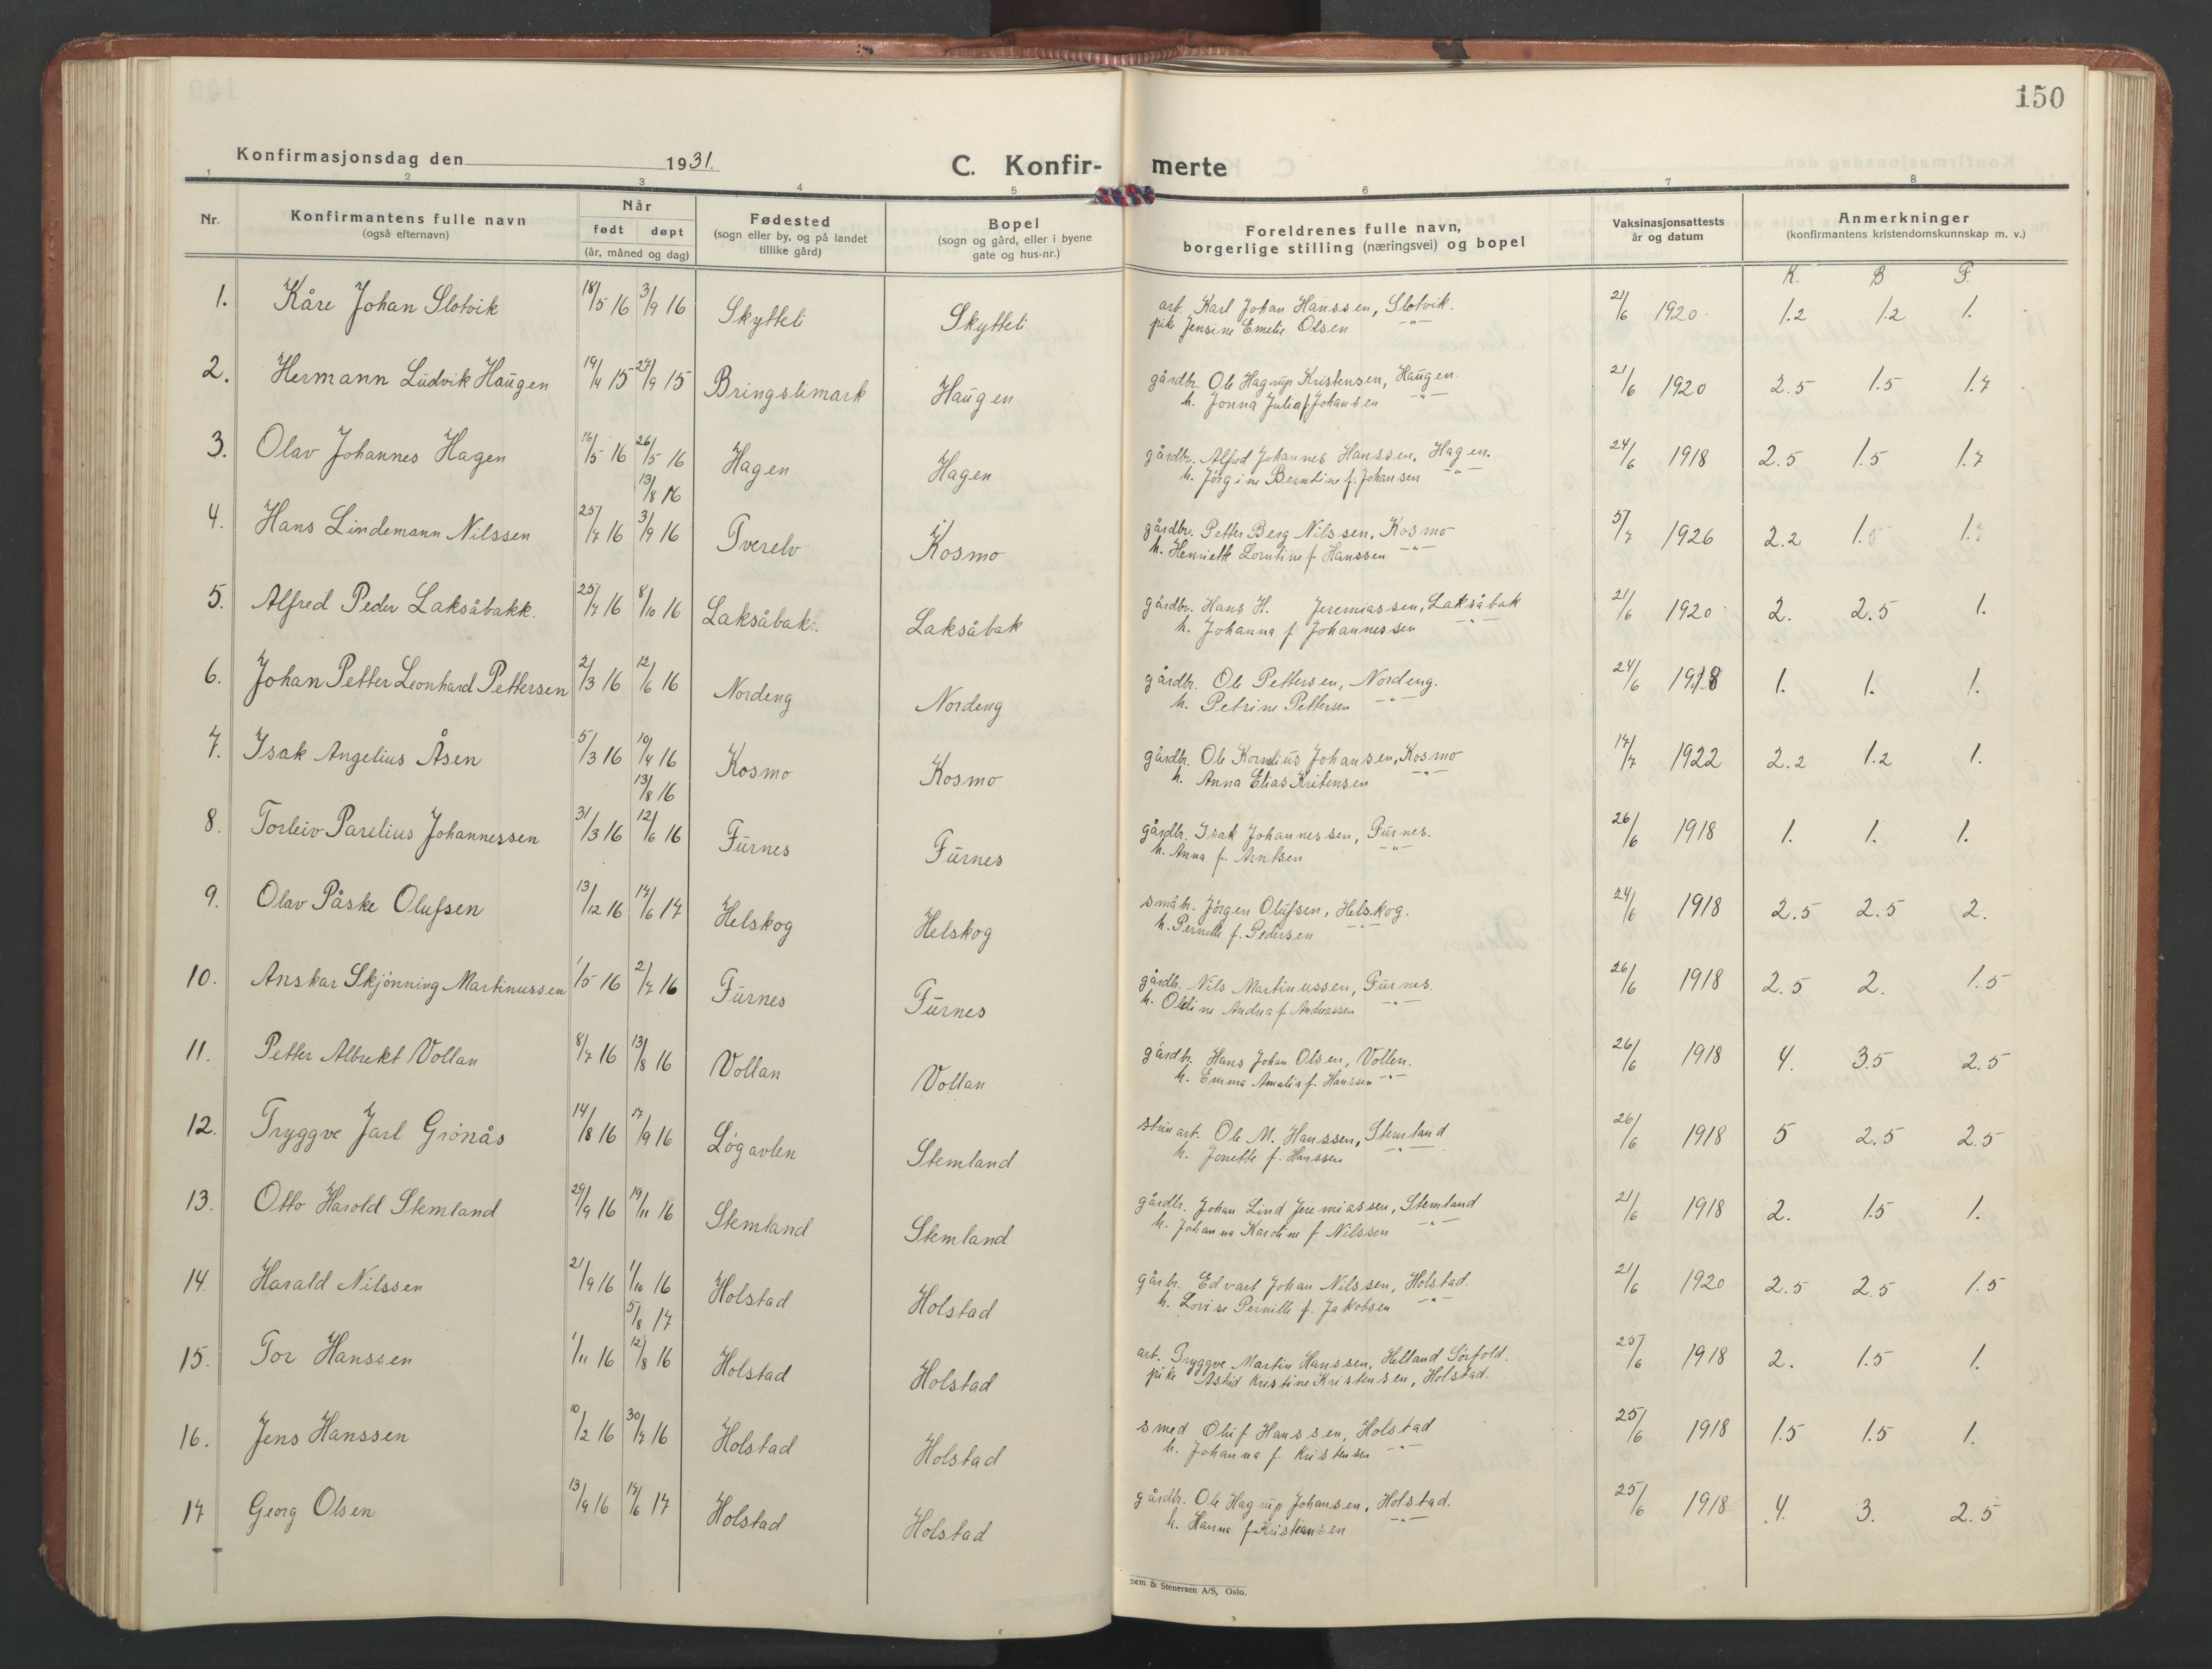 150
Konfirmasjonsdag den 1931.
C. Konfir- merte
1 2 3 4 5 6 7 8
Nr.
Konfirmantens fulle navn
(også efternavn)
Når
født døpt
(år, måned og dag)
Fødested
(sogn eller by, og på landet
tillike gård)
Bopel
(sogn og gård, eller i byene
gate og hus-nr.)
Foreldrenes fulle navn,
borgerlige stilling (næringsvei) og bopel
Vaksinasjonsattests
år og datum
Anmerkninger
(konfirmantens kristendomskunnskap m. v.)
K. B F.
1. Kåre Johan Slotvik 18/5 16 3/9 16 Skytteli Skytteli art. Karl Johan Hanssen, Slotvik. 21/6 1920 1.2 1.2 1.
pike Jensine Emelie Olsen -"-
2. Hermann Ludvik Haugen 19/4 15 27/9 15 Bringslimark Haugen gårdbr. Ole Hagrup Kristensen, Haugen. 21/6 1920 2.5 1.5 1.7
h. Jonna Julia f. Johansen -"-
3. Olav Johannes Hagen 16/5 16 26/5 16 Hagen Hagen gårdbr. Alfred Johannes Hanssen, Hagen. 24/6 1918 2.5 1.5 1.7
13/8 16 h. Jørgine Berntine f. Johansen -"-
4. Hans Lindemann Nilssen 25/7 16 3/9 16 Tverelv Kosmo gårdbr. Petter Berg Nilssen, Kosmo 5/7 1926 2.2 1. 1.
h. Henriette Lorntine f Hanssen -"-
5. Alfred Peder Laksåbakk. 25/7 16 8/10 16 Laksåbak. Laksåbak gårdbr. Hans H. Jeremiassen, Laksåbak 21/6 1920 2. 2.5 1.
h. Johanna f Johannessen -"-
6. Johan Petter Leonhard Pettersen 2/3 16 12/6 16 Nordeng Nordeng gårdbr. Ole Pettersen, Nordeng. 24/6 1918 1. 1. 1.
h. Petrine Pettersen -"-
7. Isak Angelius Åsen 5/3 16 10/4 16 Kosmo Kosmo gårdbr. Ole Kornelius Johansen, Kosmo 17/7 1922 2.2 1.2 1.
13/8 16 h. Anna Elias Kritensen -"-
8. Torleiv Parelius Johannessen 31/3 16 12/6 16 Furnes Furnes gårdbr. Isak Johannessen, Furnes. 26/6 1918 1. 1. 1.
h. Anna f. Arntsen -"-
9. Olav Påske Olufsen 13/12 16 17/6 17 Helskog Helskog småbr. Jørgen Olufsen, Helskog. 24/6 1918 2.5 2.5 2.
h. Pernille f. Pedersen -"-
10. Anskar Skjønning Martinussen 1/5 16 2/7 16 Furnes Furnes gårdbr. Nils Martinussen, Furnes. 26/6 1918 2.5 2. 1.5
h. Oldine Andrea f. Andreassen -"-
11. Petter Albrekt Vollan 8/7 16 13/8 16 Vollan Vollan gårdbr. Hans Johan Olsen, Vollen. 26/6 1918 4. 3.5 2.5
h. Emma Amalia f. Hanssen -"-
12. Tryggve Jarl Grønås 14/8 16 17/9 16 Løgavlen Stemland stenart. Ole M. Hanssen, Stemland 26/6 1918 5 2.5 2.5
h. Jonette f. Hanssen -"-
13. Otto Harold Stemland 29/9 16 19/11 16 Stemland Stemland gårdbr. Johan Lind Jeremiassen, Stemland 21/6 1918 2. 1.5 1.
h. Johanna Karoline f Nilssen -"-
14. Harald Nilssen 21/9 16 1/10 16 Holstad Holstad gårbr. Edvart Johan Nilssen, Holstad. 21/6 1920 2.5 2.5 1.5
5/8 17 h. Lovise Pernille f. Jakobsen -"-
15. Tor Hanssen 1/11 16 12/8 16 Holstad Holstad art. Tryggve Martin Hanssen, Helland Sørfold. 25/6 1918 2. 1.5 1.
pike Astrid Kristine Kristensen, Holstad.
16. Jens Hanssen 10/2 16 30/7 16 Holstad Holstad smed Oluf Hanssen, Holstad 25/6 1918 1.5 1.5 1.
h. Johanna f. Kristensen -"-
17 Georg Olsen 13/9 16 17/6 17 Holstad Holstad gårdbr. Ole Hagrup Johansen, Holstad. 25/6 1918 4. 3. 2.5
h. Hanna f. Kristiansen -"-
Sem & Stenersen A/S, Oslo.